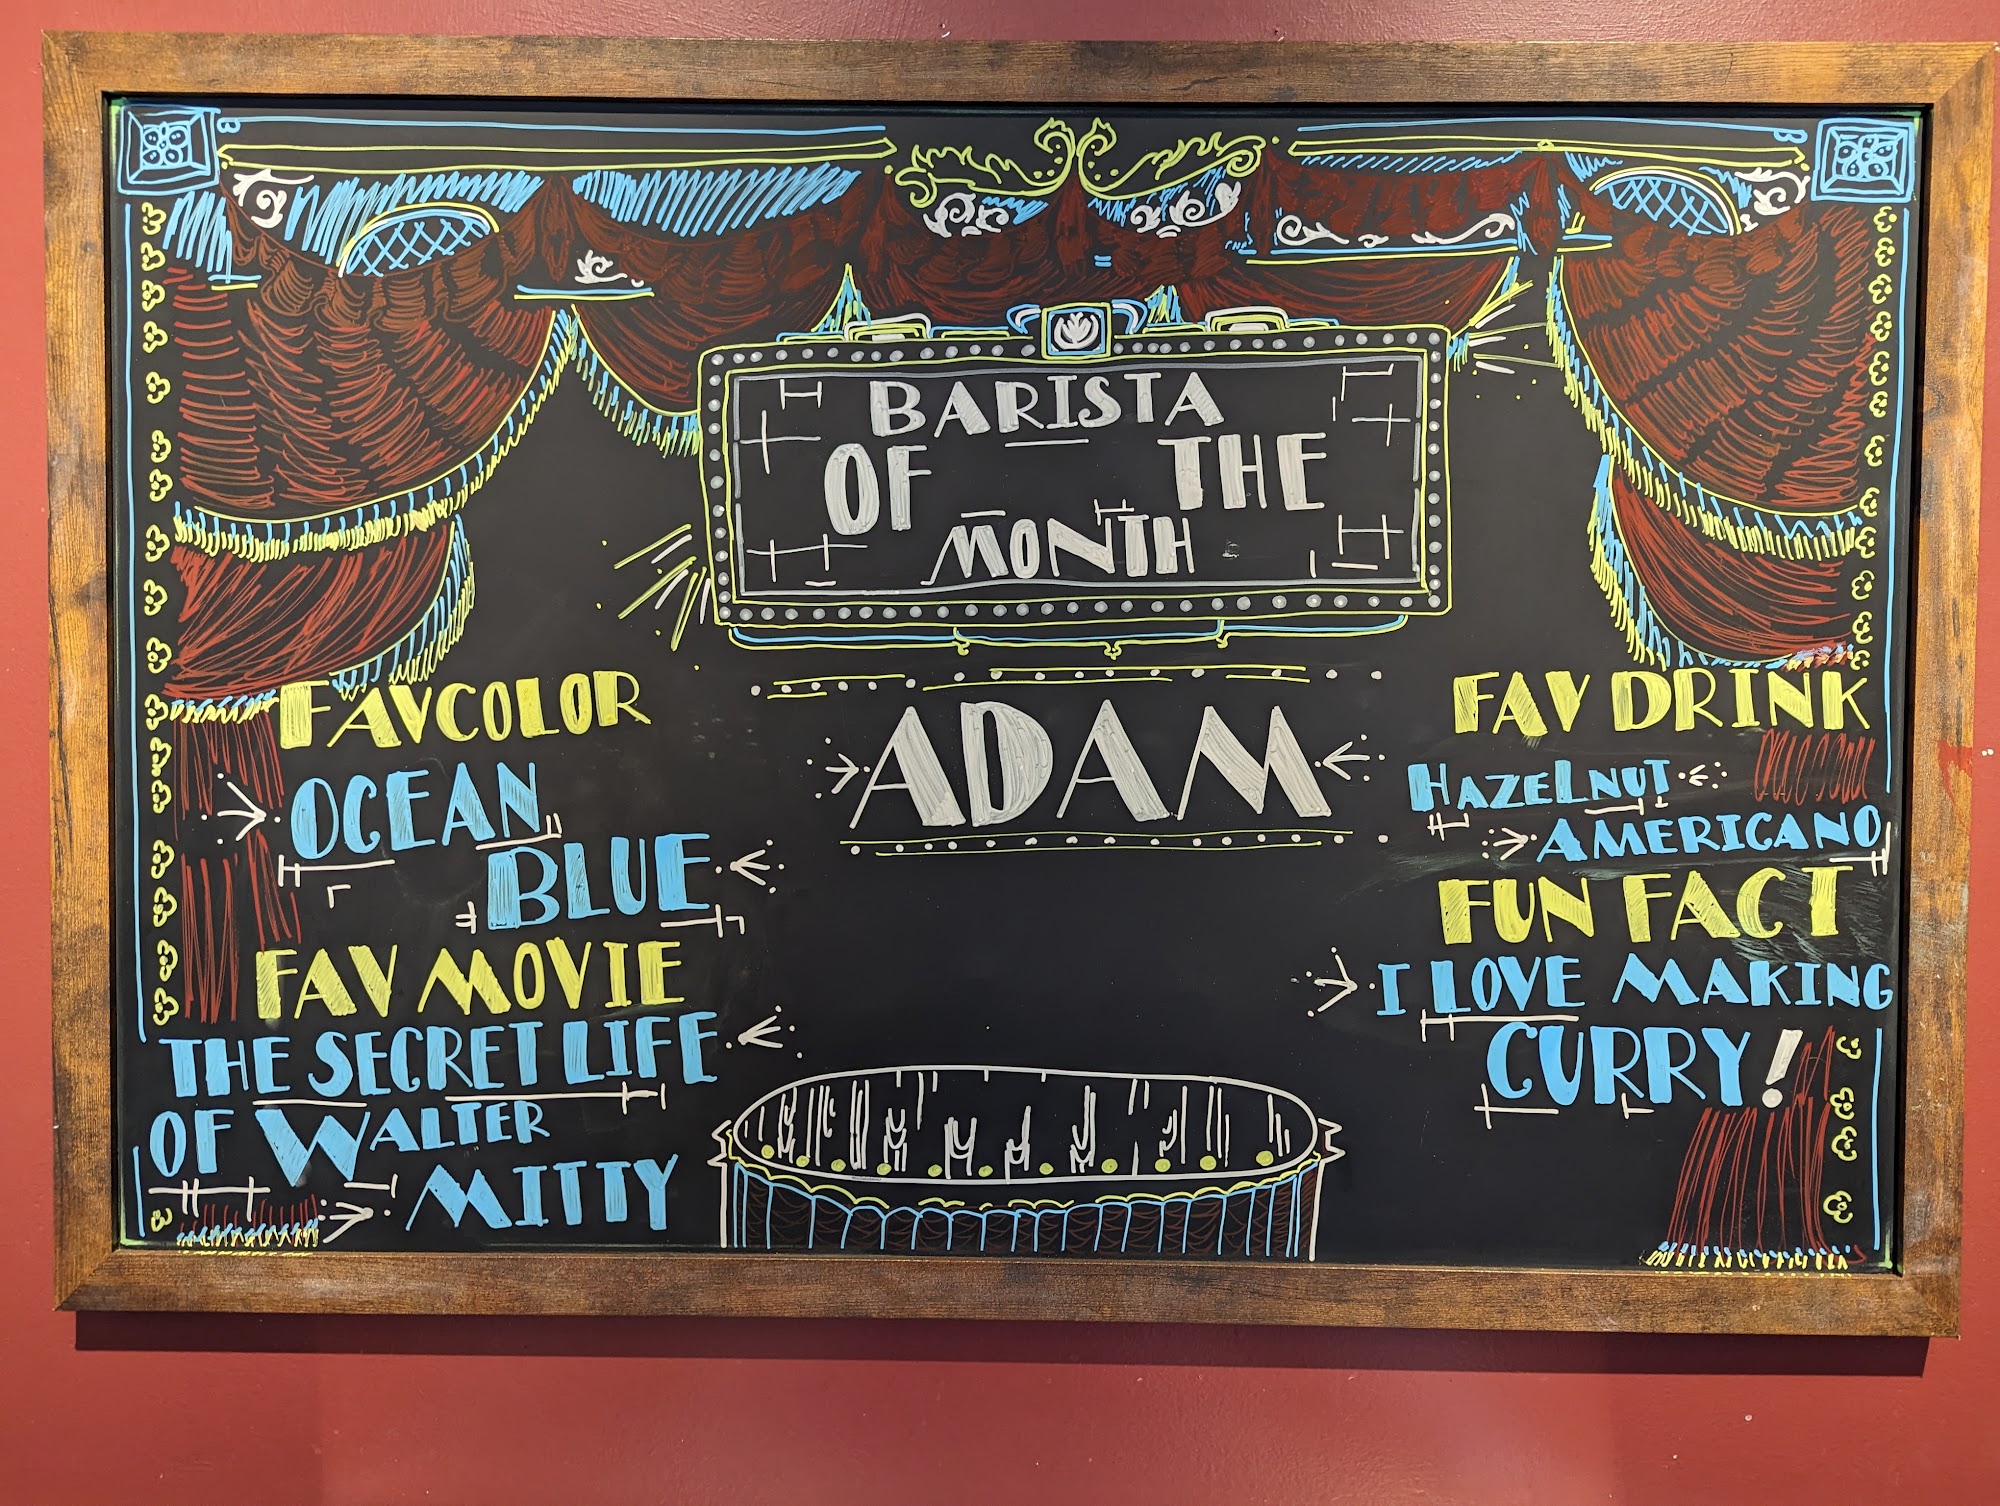 BARISTA
OF THE
MONTH
ADAM
FAV COLOR
OCEAN
BLUE
FAV MOVIE
THE SECRET LIFE
OF WALTER
MITTY
FAV DRINK
HAZELNUT
AMERICANO
FUN FACT
I LOVE MAKING
CURRY!